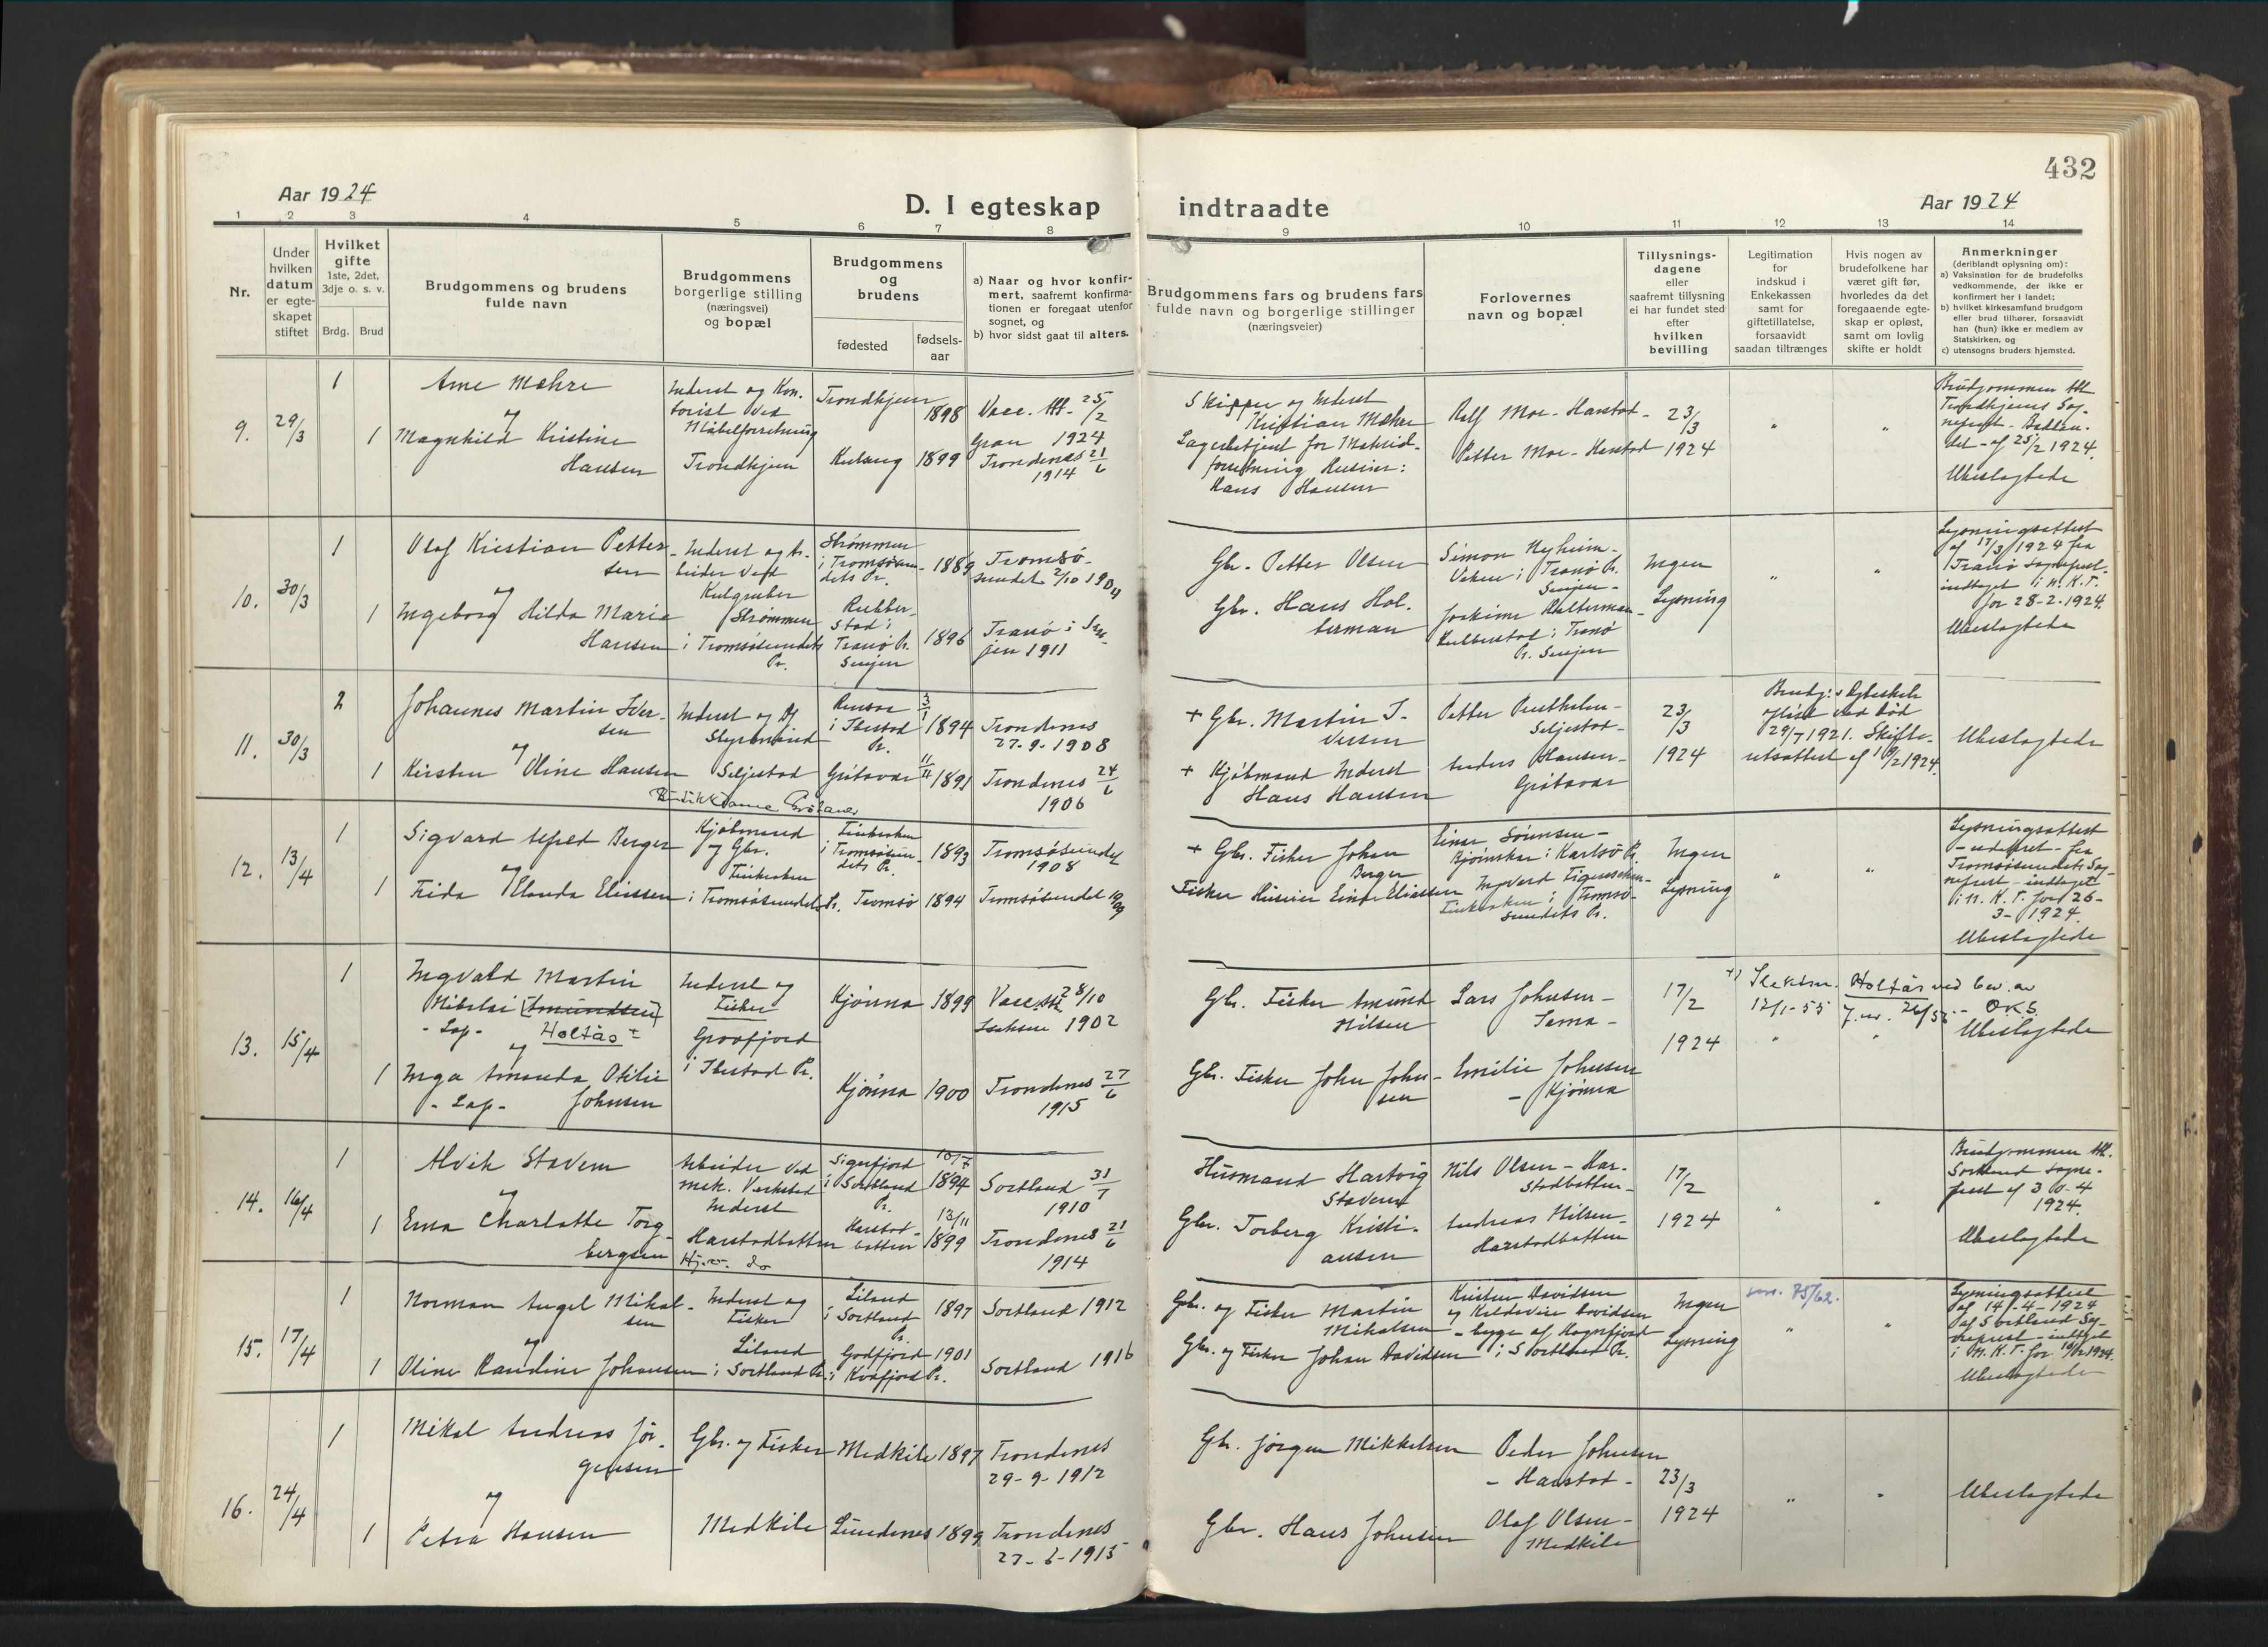 432
Aar 1924
D. I egteskap
indtraadte
Aar 1924
1 2 3 4 5 6 7 8 9 10 11 12 13 14
Nr.
Under
hvilken
datum
er egte-
skapet
stiftet
Hvilket
gifte
1ste, 2det,
3dje o. s. v.
Brdg. Brud
Brudgommens og brudens
fulde navn
Brudgommens
borgerlige stilling
(næringsvei)
og bopæl
Brudgommens
og
brudens
fødested
fødsels-
aar
a) Naar og hvor konfir-
mert, saafremt konfirma-
tionen er foregaat utenfor
sognet, og
b) hvor sidst gaat til alters.
Brudgommens fars og brudens fars
fulde navn og borgerlige stillinger
(næringsveier)
Forlovernes
navn og bopæl
Tillysnings-
dagene
eller
saafremt tillysning
ei har fundet sted
efter
hvilken
bevilling
Legitimation
for
indskud i
Enkekassen
samt for
giftetillatelse,
forsaavidt
saadan tiltrænges
Hvis nogen av
brudefolkene har
været gift før,
hvorledes da det
foregaaende egte-
skap er opløst,
samt om lovlig
skifte er holdt
Anmerkninger
(deriblandt oplysning om):
a) Vaksination for de brudefolks
vedkommende, der ikke er
konfirmert her i landet;
b) hvilket kirkesamfund brudgom
eller brud tilhører, forsaavidt
han (hun) ikke er medlem av
Statskirken, og
c) utensogns bruders hjemsted.
9. 29/3
1
Arne Mæhre
og
1 Magnhild Kristine
Hansen
Inderst og Kon-
torist ved
Møbelforretning
Trondhjem
Trondhjem 1898
1899
Vacc. Att. 25/2
1924
Trondenes 21/6
1914
Skipper og Inderst
Kristian Mæhre
Hans Hansen
Rolf Moe - Harstad -
Petter Moe - Harstad
23/3
1924
"
"
Brudgommen Att.
Trondhjems Sog-
af 25/2 1924.
Ubeslagtede
10. 30/3
1
Olaf Kristian Petter-
sen
og
1 Ingeborg Hilda Marie
Hansen
Inderst og Ar-
beider ved
Kulgruber
Strømmen
i Tromsøsundets
Pr.
Strømmen
i Tromsøsun-
dets Pr. 1889
Stad i
Tranø Pr.
Senjen 1896
Tromsø-
sundet 2/10 1904
Tranø i Sen-
jen 1911
Gbr. Petter Olsen
Gbr. Hans Hol-
terman
Simon Nyheim -
i Tranø Pr.
Senjen -
i Tranø
Pr. Senjen
Ingen
Lysning
"
"
Lysningsattest
af 17/3 1924 fra
Tranø Sogneprest.
indtaget i N. K. T.
for 28-2-1924.
Ubeslagtede
11. 30/3
2
Johannes Martin Iver-
sen
og
1 Kirsten Oline Hansen
Inderst og
Styrmand
Seljestad
i Ibestad
Pr. 3/1 1894
Grøtavær 11/11 1891
Trondenes
27-9-1908
Trondenes 24/6
1906
+ Gbr. Martin I-
versen
+ Kjøbmand Inderst
Hans Hansen
Seljestad -
Anders Hansen -
Grøtavær
23/3
1924
Brudg:s Egteskab
opløst ved død
29/7 1921. Skifte-
attest af 19/2 1924.
Ubeslagtede
12. 13/4
1
Sigvard Alfred Berger
og
1 Frida Elanda Eliassen
Kjøbmand
og Gbr.
i Tromsøsundets Pr.
i Tromsøsun-
dets Pr. 1893
Tromsø 1894
Tromsøsundet
1908
Tromsøsundet
+ Gbr. Fisker Johan
Berger
Fisker Huseier Einar Eliassen
Einar Sørensen -
i Karlsø Pr.
i Tromsø-
sundets Pr.
Ingen
Lysning
"
"
Lysningsattest
- udateret - fra
Tromsøsundets Sog-
neprest - indtaget
i N. K. T. for 26-
3-1924.
Ubeslagtede
13. 15/4
1
Ingvald Martin
Nikolai (Amundsen)
- Lap - Holtås +
og
1 Inga Amanda Otilie
- Lap - Johnsen
Inderst og
Fisker
Grovfjord
i Ibestad Pr.
Kjønna 1899
Kjønna 1900
Vacc. att 28/10
1902
Trondenes 27/6
1915
Gbr. Fisker Amund
Nilsen
Gbr. Fisker John John-
sen
Lars Johnsen -
Sama -
Emilie Johnsen
- Kjønna
17/2
1924
+) Slektsn. Holtås ved bev. av
12/1-55 J.nr. 26/55 - O.K.S.
"
"
Ubeslagtede
14. 16/4
1
Alvik Stavem
og
1 Erna Charlotte Torg-
bergsen
Arbeider ved
mek. Verksted
Inderst
Harstadbotten
Hj.v. do
Sigerfjord
i Sortland
Pr. 10/7 1894
Harstad-
botten 13/11 1899
Sortland 31/7
1910
Trondenes 21/6
1914
Husmand Hartvig
Stavem
Gbr. Torberg Kristi-
ansen
Nils Olsen - Har-
stadbotten -
Andreas Nilsen -
Harstadbotten
17/2
1924
"
"
Brudgommen Att.
Sortland Sogne-
prest af 30-4
1924.
Ubeslagtede
15. 17/4
1
Norman Angel Mikal-
sen
og
1 Oline Randine Johansen
Inderst og
Fisker
Liland
i Sortland Pr.
Liland
i Sortland
Pr. 1897
Godfjord
i Kvæfjord Pr. 1901
Sortland 1912
Sortland 1916
Gbr. og Fisker Martin
Mikalsen
Gbr. og Fisker Johan Davidsen
Kristen Davidsen
og Davidsen
- begge af
i Sortland Pr.
Ingen
Lysning
75/62.
"
"
Lysningsattest
af 14-4-1924
af Sortland Sog-
neprest - indtaget
i N. K. T. for
Ubeslagtede
16. 24/4
1
Mikal Andreas Jør-
gensen
og
1 Petra Hansen
Gbr. og Fisker
Medkile
Medkile 1897
Lundenes 1899
Trondenes
29-9-1912
Trondenes
27-6-1915
Gbr. Jørgen Mikkelsen
Gbr. Hans Johnsen
Peder Johnsen
- Harstad -
Olaf Olsen -
Medkile
23/3
1924
"
"
Ubeslagtede